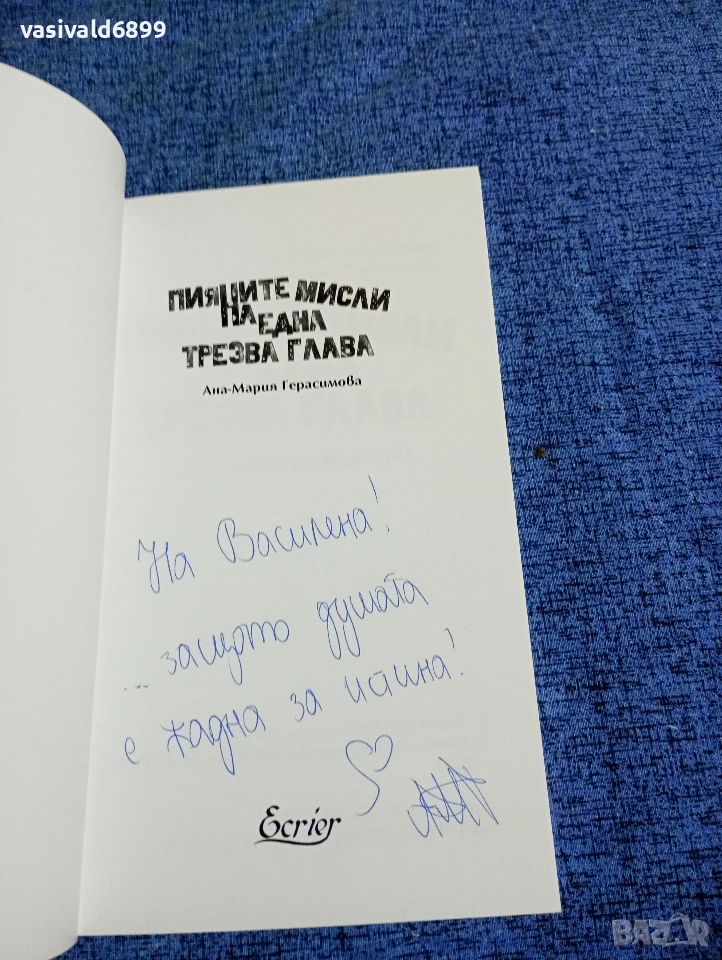 vasivald6899
ПИЯНИТЕ МИСЛИ
НА ЕДНА
ТРЕЗВА ГЛАВА
Ана-Мария Герасимова
На Василена!
... защото думата
е жадна за истина!
Ecrier
BAZAR